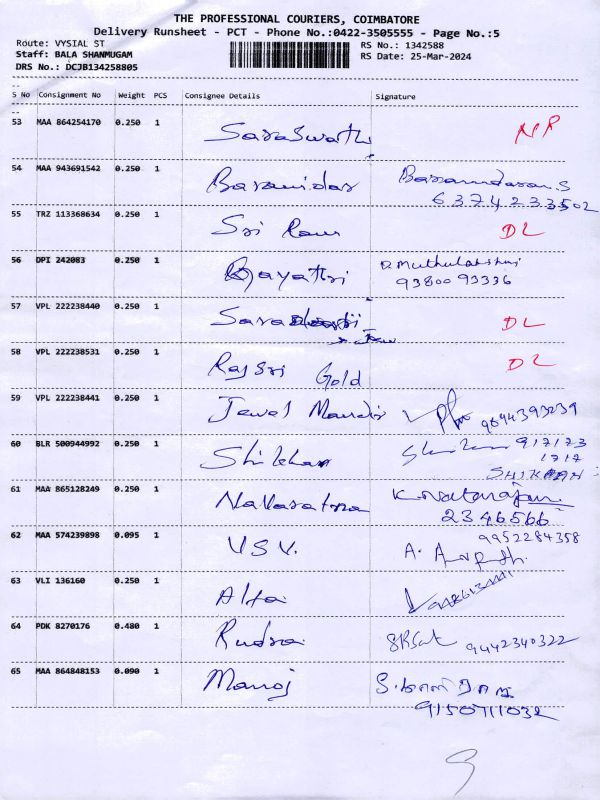 THE PROFESSIONAL COURIERS, COIMBATORE
Delivery Runsheet - PCT - Phone No.:0422-3505555 - Page No.:5
Route: VYSIAL ST
Staff: BALA SHANMUGAM
DRS No.: DCJB134258805
RS No.: 1342588
RS Date: 25-Mar-2024
S No Consignment No Weight PCS Consignee Details Signature
53 MAA 864254170 0.250 1 Saraswathi NR
54 MAA 943691542 0.250 1
6374233502
55 TRZ 113368634 0.250 1 Sri Ram DL
56 DPI 242083 0.250 1 Gayathri D. Muthulakshmi
93800 93336
57 VPL 222238440 0.250 1 DL
58 VPL 222238531 0.250 1 Rajsri Gold DL
59 VPL 222238441 0.250 1 Jewel Mandir 9894393239
60 BLR 500944992 0.250 1 Shikhar 917173
1717
SHIKHAH
61 MAA 865128249 0.250 1 Navaratna K. Natarajan
2346566
62 MAA 574239898 0.095 1 V.S.V. 9952284358
A.
63 VLI 136160 0.250 1
64 PDK 8270176 0.480 1 Rudra 9442340322
65 MAA 864848153 0.090 1 Manoj
9150711032